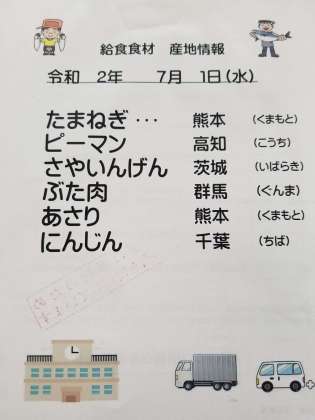 給食食材　産地情報
令和　2年　7月　1日(水)
たまねぎ･･･　熊本　(くまもと)
ピーマン　高知　(こうち)
さやいんげん　茨城　(いばらき)
ぶた肉　群馬　(ぐんま)
あさり　熊本　(くまもと)
にんじん　千葉　(ちば)